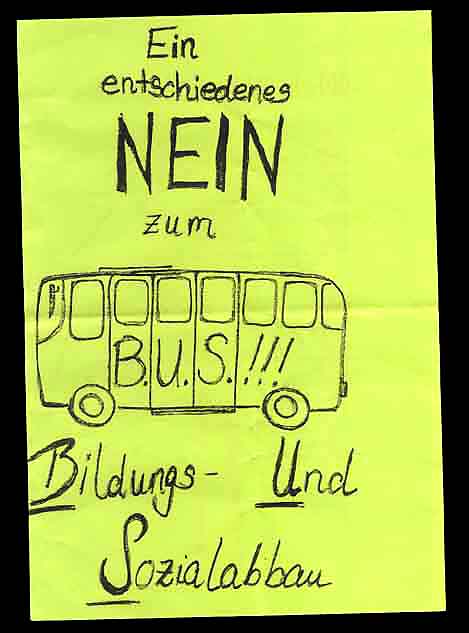 Ein
entschiedenes
NEIN
zum
B.U.S.!!!
Bildungs- Und
Sozialabbau